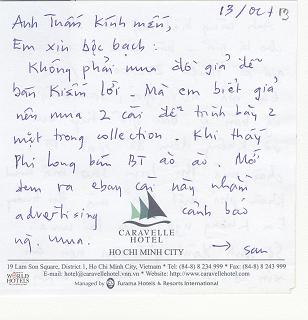 13/Oct/13
Anh Tuấn kính mến,
Em xin bộc bạch:
Không phải mua đồ giả để
bán kiếm lời. Mà em biết giả
nên mua 2 cái để trình bày 2
mặt trong collection. Khi thấy
Phi Long bán BT ào ào. Mới
đem ra ebay cái này nhằm
advertising cảnh báo
ng. mua.
→ sau
CARAVELLE
HOTEL
HO CHI MINH CITY
19 Lam Son Square, District 1, Ho Chi Minh City, Vietnam * Tel: (84-8) 8 234 999 * Fax: (84-8) 8 243 999
E-mail: hotel@caravellehotel.vnn.vn * Website: http://www.caravellehotel.com
WORLD
HOTELS
Managed by Furama Hotels & Resorts International